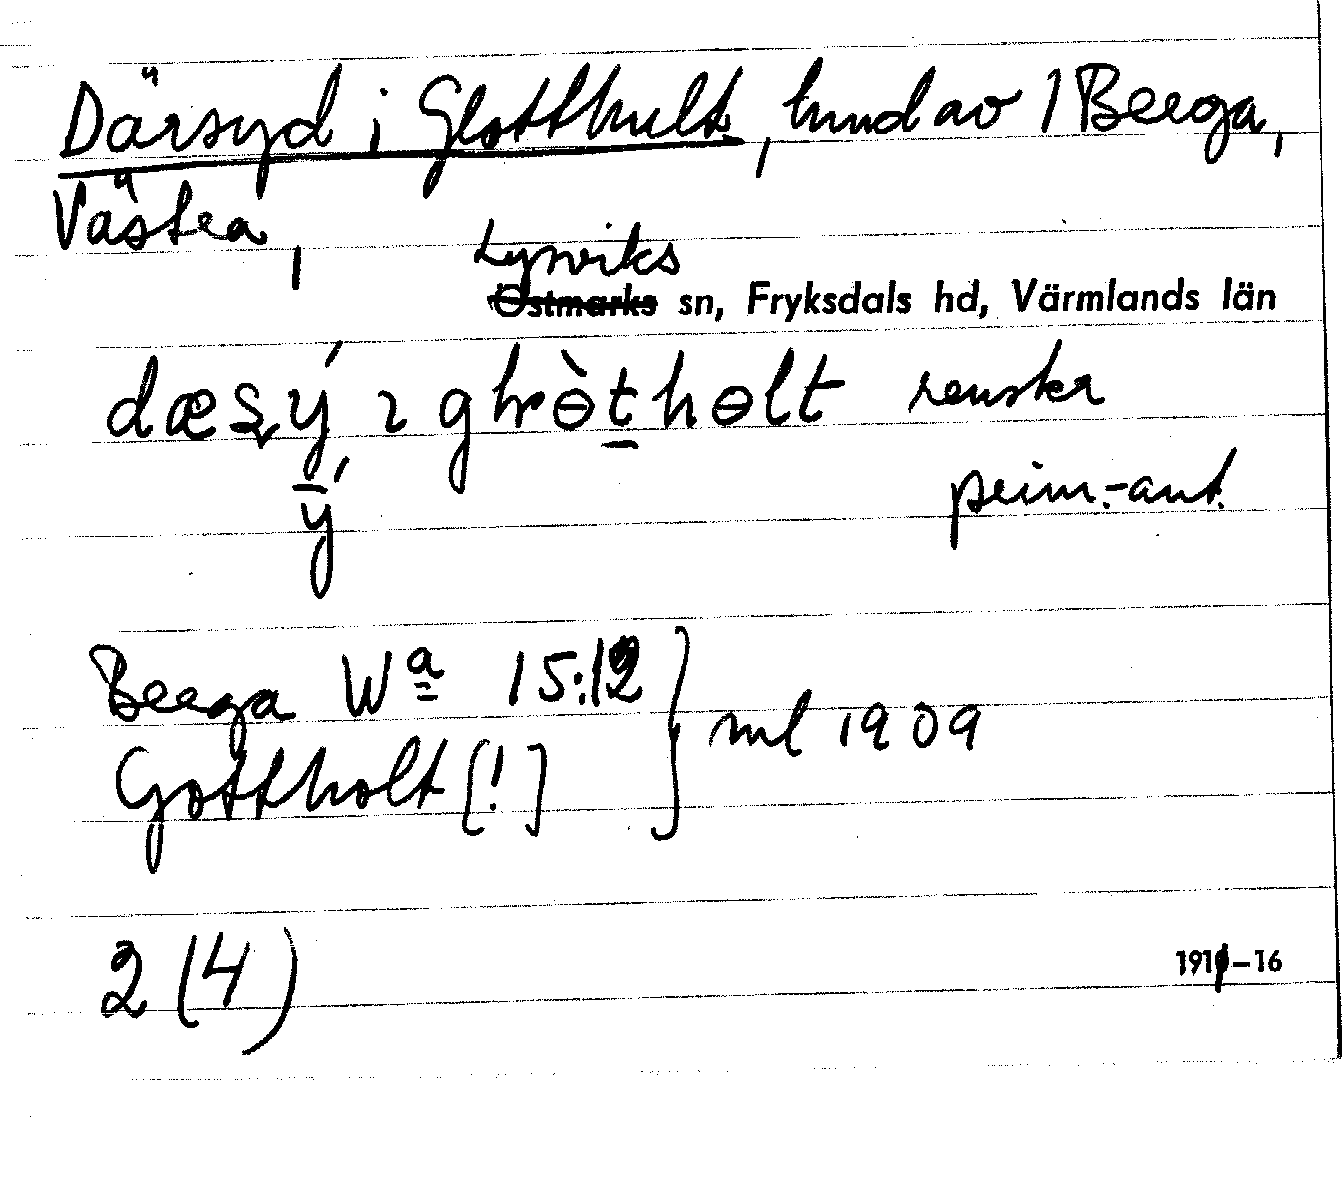 Därsyd i Glotthult, hmd av 1 Berga,
Västra,
Lysviks
Östmarks sn, Fryksdals hd, Värmlands län
renskr
ý
prim.-ant.
Berga Wª 15:12
Gottholt [!] ml 1909
2 (4)
1911-16